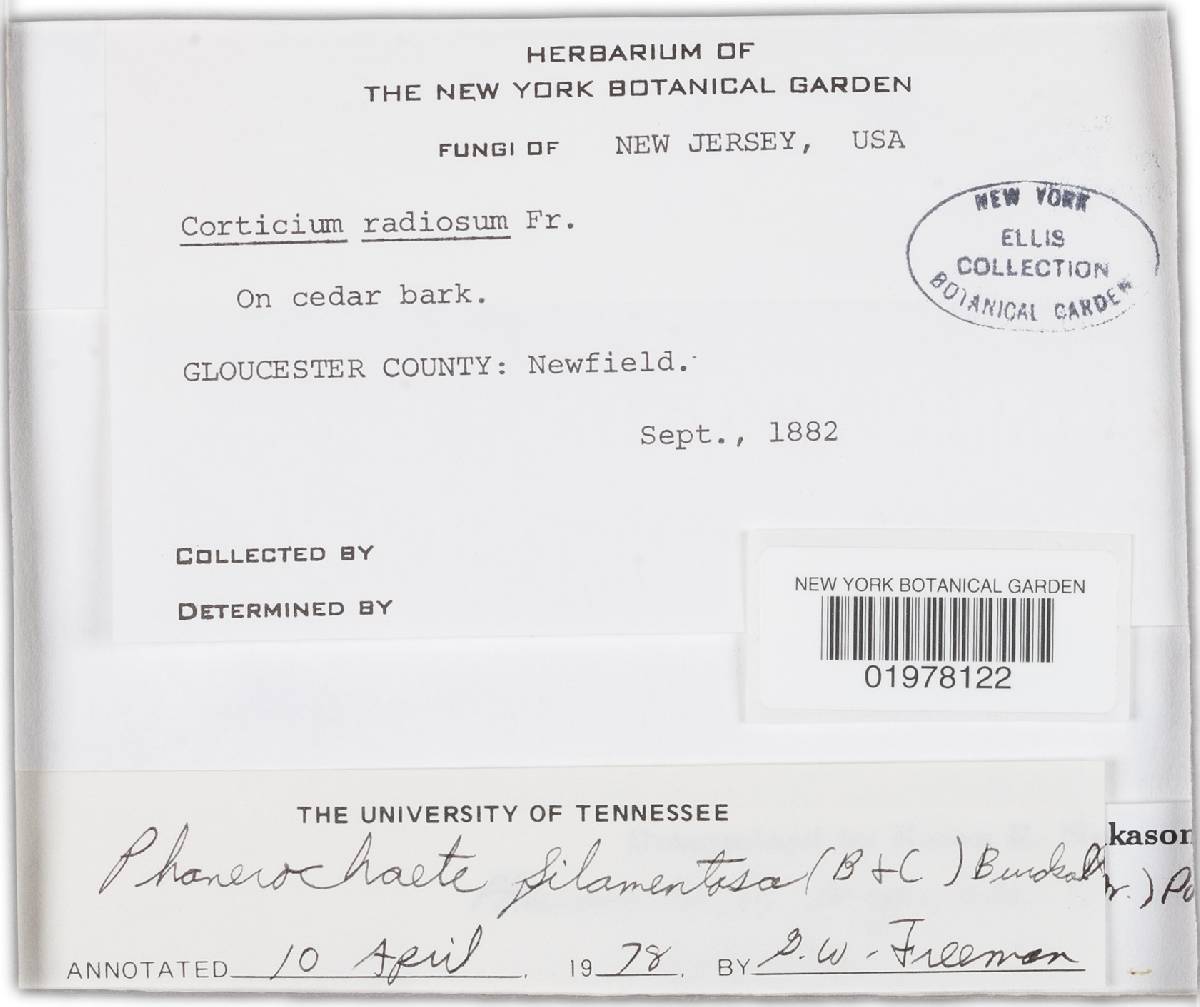 HERBARIUM OF
THE NEW YORK BOTANICAL GARDEN
FUNGI OF NEW JERSEY, USA
Corticium radiosum Fr.
NEW YORK
ELLIS
COLLECTION
BOTANICAL GARDEN
On cedar bark.
GLOUCESTER COUNTY: Newfield.
Sept., 1882
COLLECTED BY
DETERMINED BY
NEW YORK BOTANICAL GARDEN
01978122
THE UNIVERSITY OF TENNESSEE
Phanerochaete filamentosa (B + C) Burdsall
ANNOTATED 10 April 1978. BY G.W. Freeman
kason
r.) Po